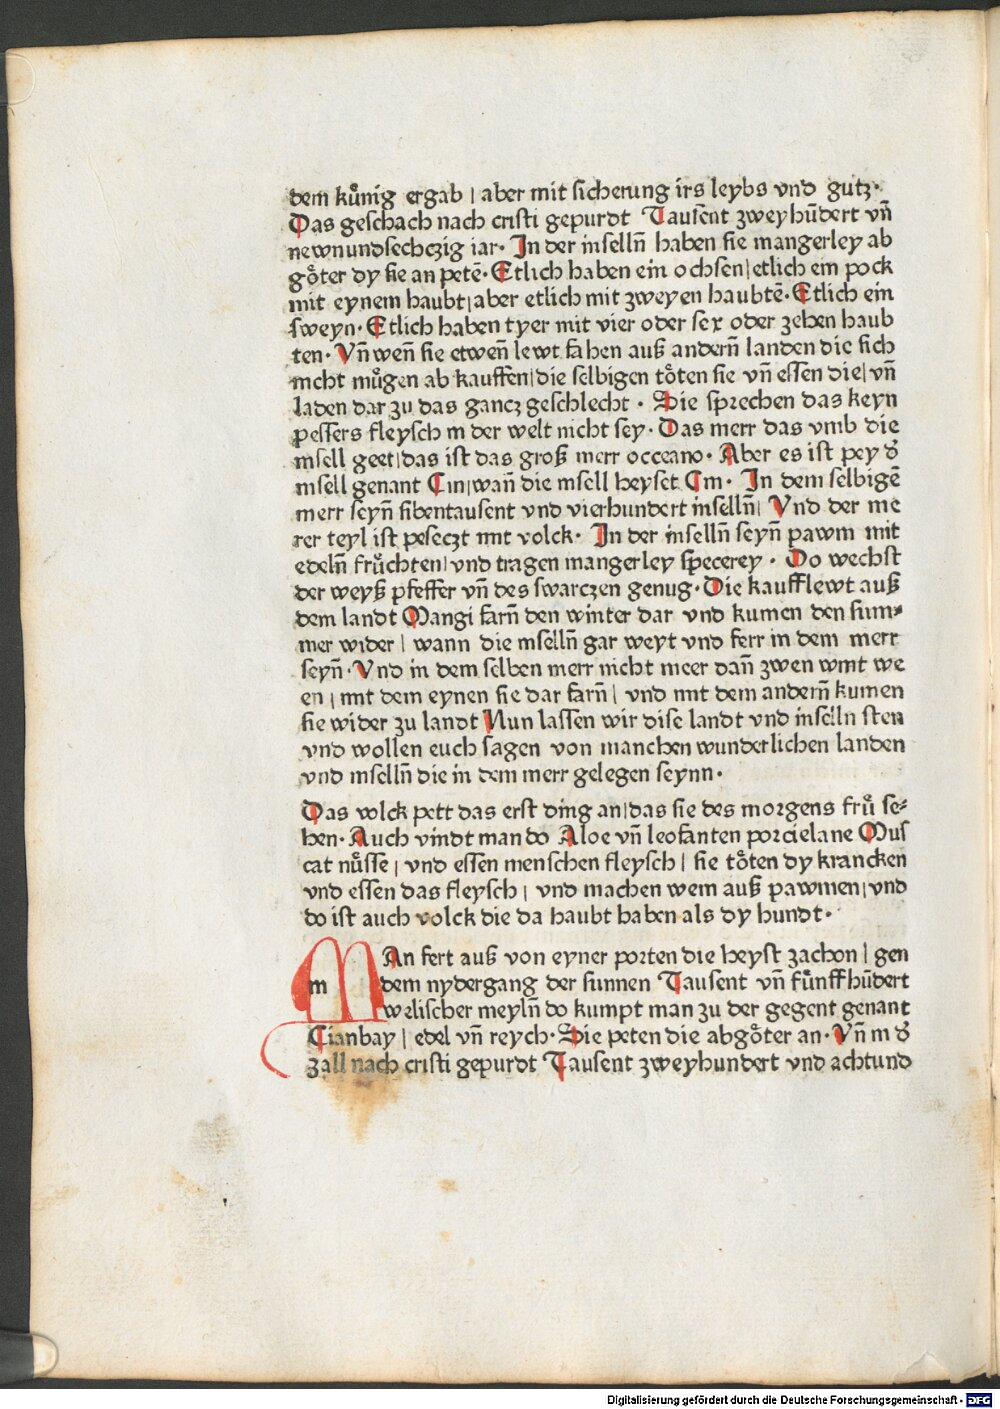 dem kuͤnig ergab / aber mit sicherung irs leybs vnd gutz·
Das geschach nach cristi gepurdt Tausent zweyhūdert vn̄
newnundsechczig iar· In der inselln̄ haben sie mangerley ab
goͤter dy sie an petē· Etlich haben ein ochsen/ etlich ein pock
mit eynem haubt/ aber etlich mit zweyen haubtē· Etlich ein
sweyn· Etlich haben tyer mit vier oder sex oder zehen haub
ten· Vn̄ wen̄ sie etwen̄ lewt fahen auß andern̄ landen die sich
nicht muͤgen ab kauffen/ die selbigen toͤten sie vn̄ essen die/ vn̄
laden dar zu das gancz geschlecht · Sie sprechen das keyn
pessers fleysch in der welt nicht sey· Das merr das vmb die
insell geet/ das ist das groß merr occeano· Aber es ist pey d̄
insell genant Cin/ wan̄ die insell heyset Cin· In dem selbigē
merr seyn̄ sibentausent vnd vierhundert inselln̄/ Vnd der me
rer teyl ist peseczt mit volck· In der inselln̄ seyn̄ pawm mit
edeln̄ fruͤchten/ vnd tragen mangerley specerey · Do wechst
der weyß pfeffer vn̄ des swarczen genug· Die kaufflewt auß
dem landt Mangi farn̄ den winter dar vnd kumen den sum⸗
mer wider / wann die inselln̄ gar weyt vnd ferr in dem merr
seyn̄· Vnd in dem selben merr nicht meer dan̄ zwen wint we
en / mit dem eynen sie dar farn̄ / vnd mit dem andern̄ kumen
sie wider zu landt Nun lassen wir dise landt vnd inselln sten
vnd wollen euch sagen von manchen wunderlichen landen
vnd inselln̄ die in dem merr gelegen seynn·
Das volck pett das erst ding an/ das sie des morgens fruͤ se⸗
hen· Auch vindt man do Aloe vn̄ leofanten porcielane Mus
cat nuͤsse / vnd essen menschen fleysch / sie toͤten dy krancken
vnd essen das fleysch / vnd machen wein auß pawmen/ vnd
do ist auch volck die da haubt haben als dy hundt·
MAn fert auß von eyner porten die heyst zachon / gen
dem nydergang der sunnen Tausent vn̄ fuͤnffhūdert
welischer meyln̄ do kumpt man zu der gegent genant
Cianbay / edel vn̄ reych· Sie peten die abgoͤter an· Vn̄ in d̄
zall nach cristi gepurdt Tausent zweyhundert vnd achtund
Digitalisierung gefördert durch die Deutsche Forschungsgemeinschaft - DFG